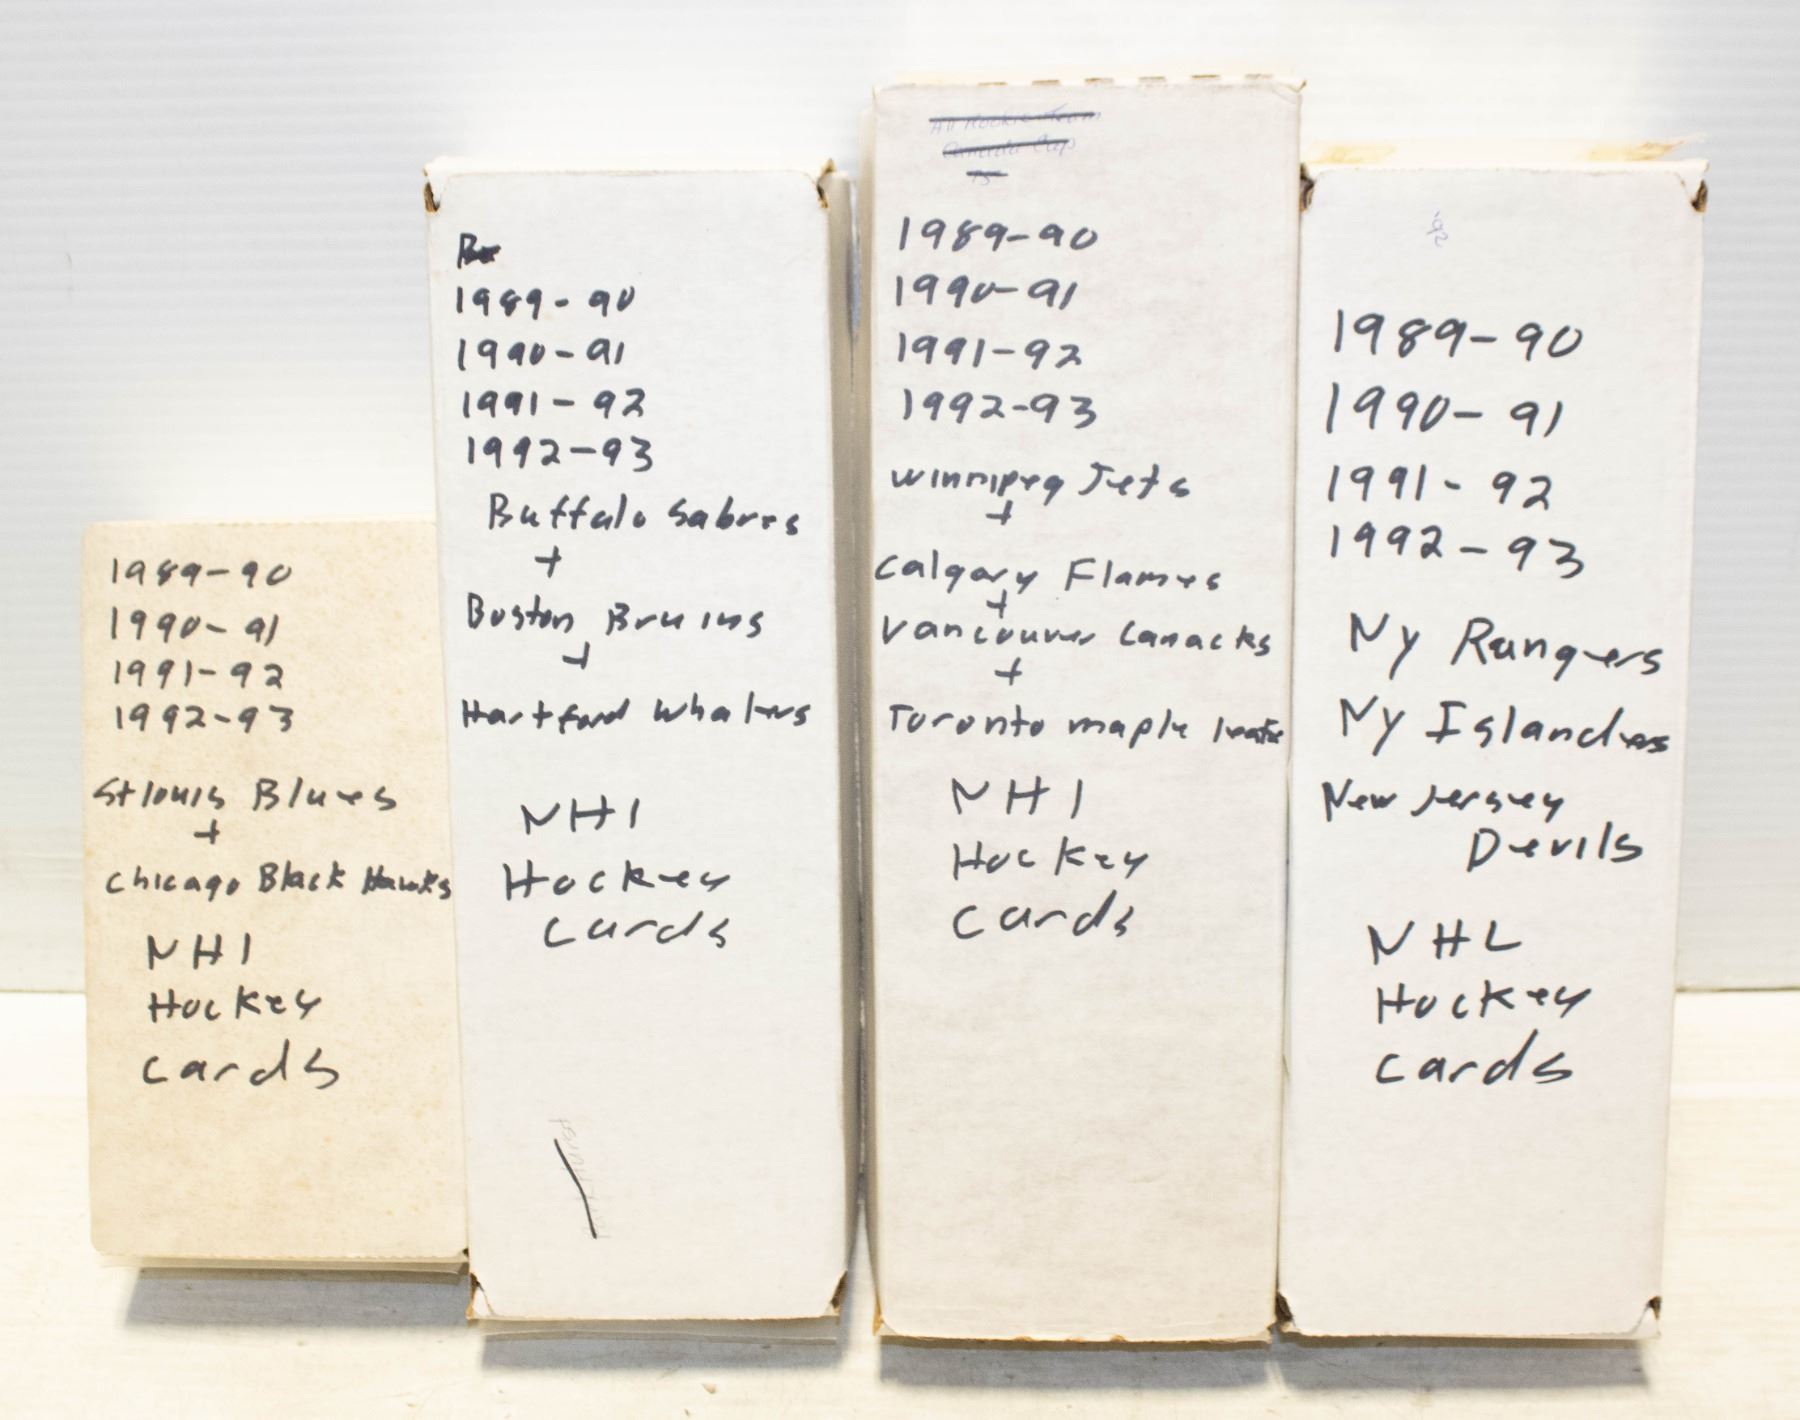 1989-90
1990-91
1991-92
1992-93
St louis Blues
+
Chicago Black Hawks
NHl
Hockey
cards
1989-90
1990-91
1991-92
1992-93
Buffalo Sabres
+
Boston Bruins
+
Hartford Whalers
NHl
Hockey
cards
All Rookie Team
Canada Cup
1989-90
1990-91
1991-92
1992-93
Winnipeg Jets
+
Calgary Flames
+
Vancouver Canacks
+
Toronto maple leafs
NHl
Hockey
cards
1989-90
1990-91
1991-92
1992-93
Ny Rangers
Ny Islanders
New Jersey
Devils
NHL
Hockey
cards